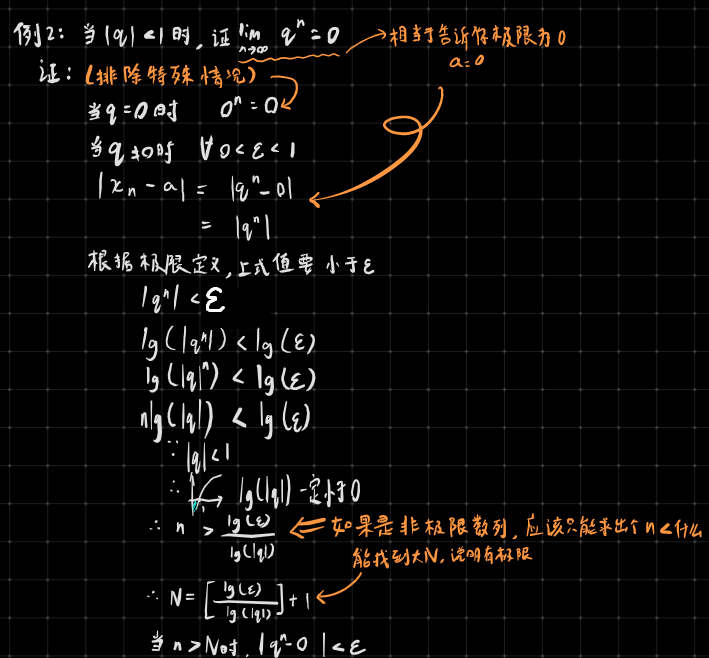 例2: 当|q|<1时,证 lim n→∞ q^n=0 →相当于告诉你极限为0
a=0
证: (排除特殊情况)
当q=0时 0^n=0
当q≠0时 ∀0<ε<1
|x_n-a|= |q^n-0|
= |q^n|
根据极限定义,上式值要小于ε
|q^n|<ε
lg(|q^n|)<lg(ε)
lg(|q|^n)<lg(ε)
nlg(|q|)<lg(ε)
∵|q|<1
∴ lg(|q|)一定小于0
∴ n > lg(ε)/lg(|q|) ⇐ 如果是非极限数列,应该只能求出个n<什么
能找到大N,说明有极限
∴ N=[lg(ε)/lg(|q|)]+1
当n>N时,|q^n-0|<ε